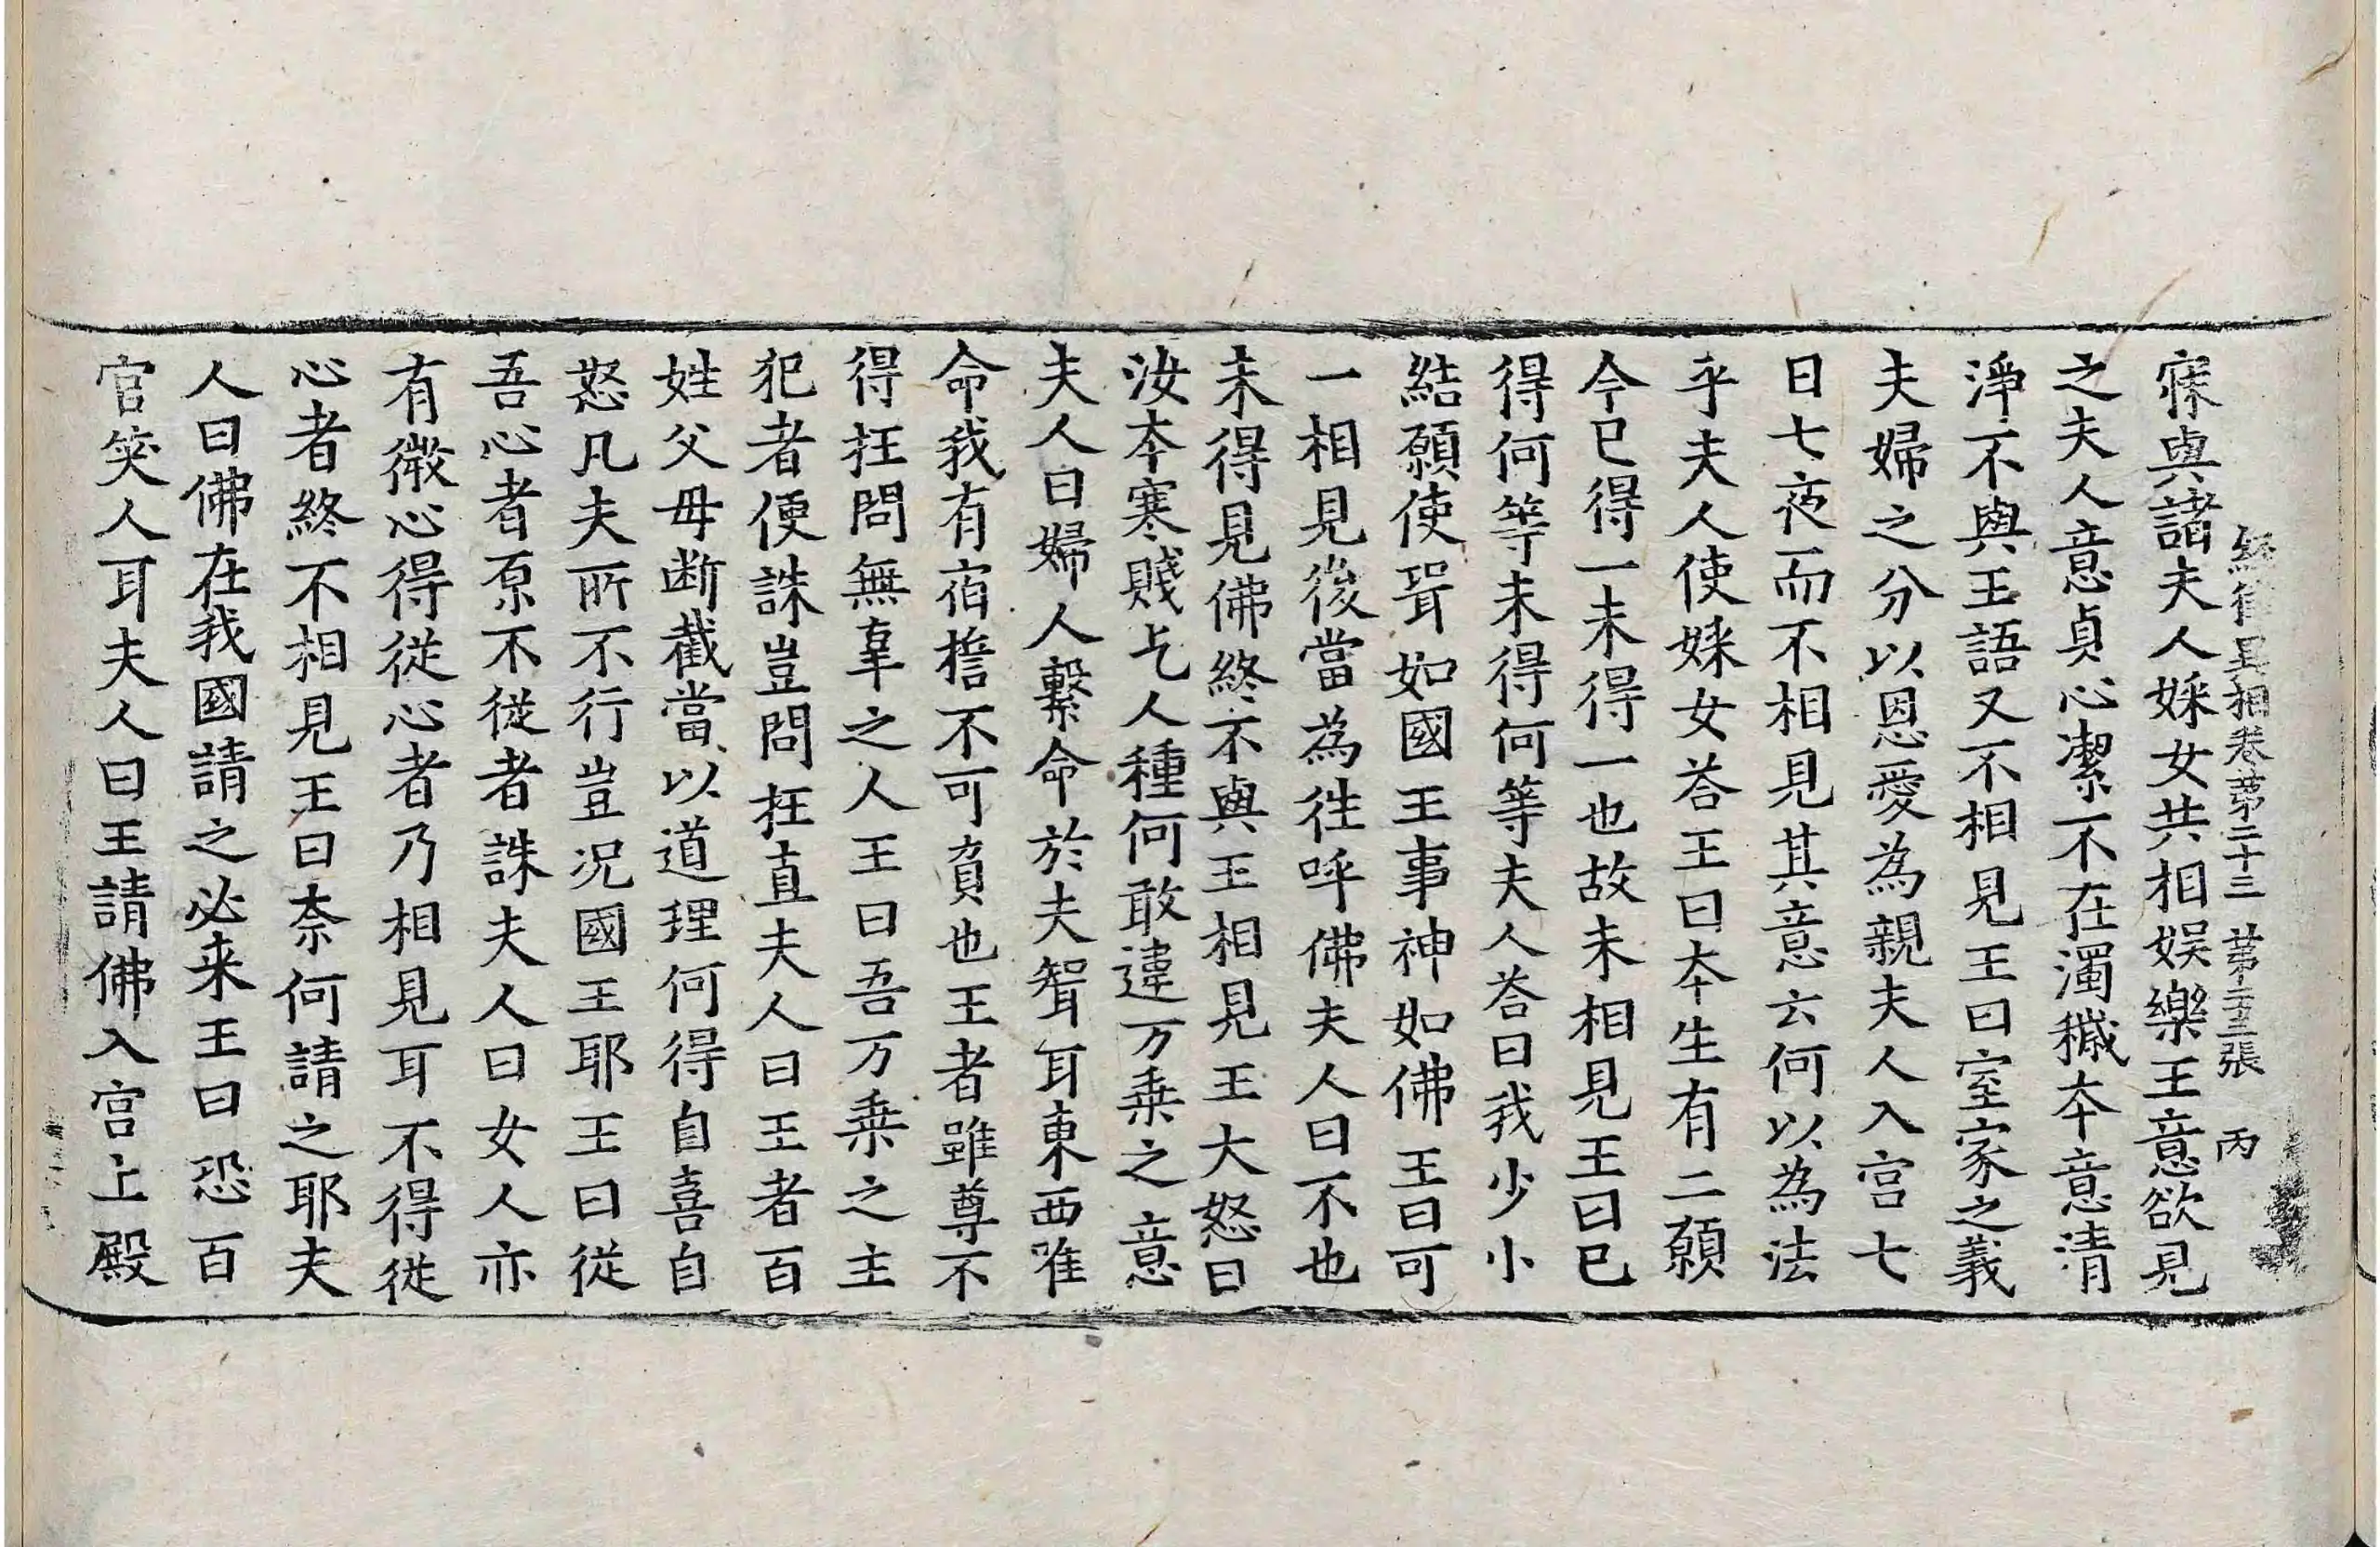 經律異相卷第二十三 第二十三張 丙
寐與諸夫人婇女共相娛樂王意欲見
之夫人意貞心潔不在濁穢本意清
淨不與王語又不相見王曰室家之義
夫婦之分以恩愛為親夫人入宮七
日七夜而不相見其意云何以為法
乎夫人使婇女荅王曰本生有二願
今已得一未得一也故未相見王曰已
得何等未得何等夫人荅曰我少小
結願使壻如國王事神如佛王曰可
一相見後當為往呼佛夫人曰不也
未得見佛終不與王相見王大怒曰
汝本寒賤乞人種何敢違万乗之意
夫人曰婦人繫命於夫聟耳東西唯
命我有宿擔不可負也王者雖尊不
得抂問無辜之人王曰吾万乗之主
犯者便誅豈問抂直夫人曰王者百
姓父母断截當以道理何得自喜自
怒凡夫所不行豈況國王耶王曰従
吾心者原不従者誅夫人曰女人亦
有微心得従心者乃相見耳不得従
心者終不相見王曰奈何請之耶夫
人曰佛在我國請之必来王曰恐百
官笑人耳夫人曰王請佛入宮上殿